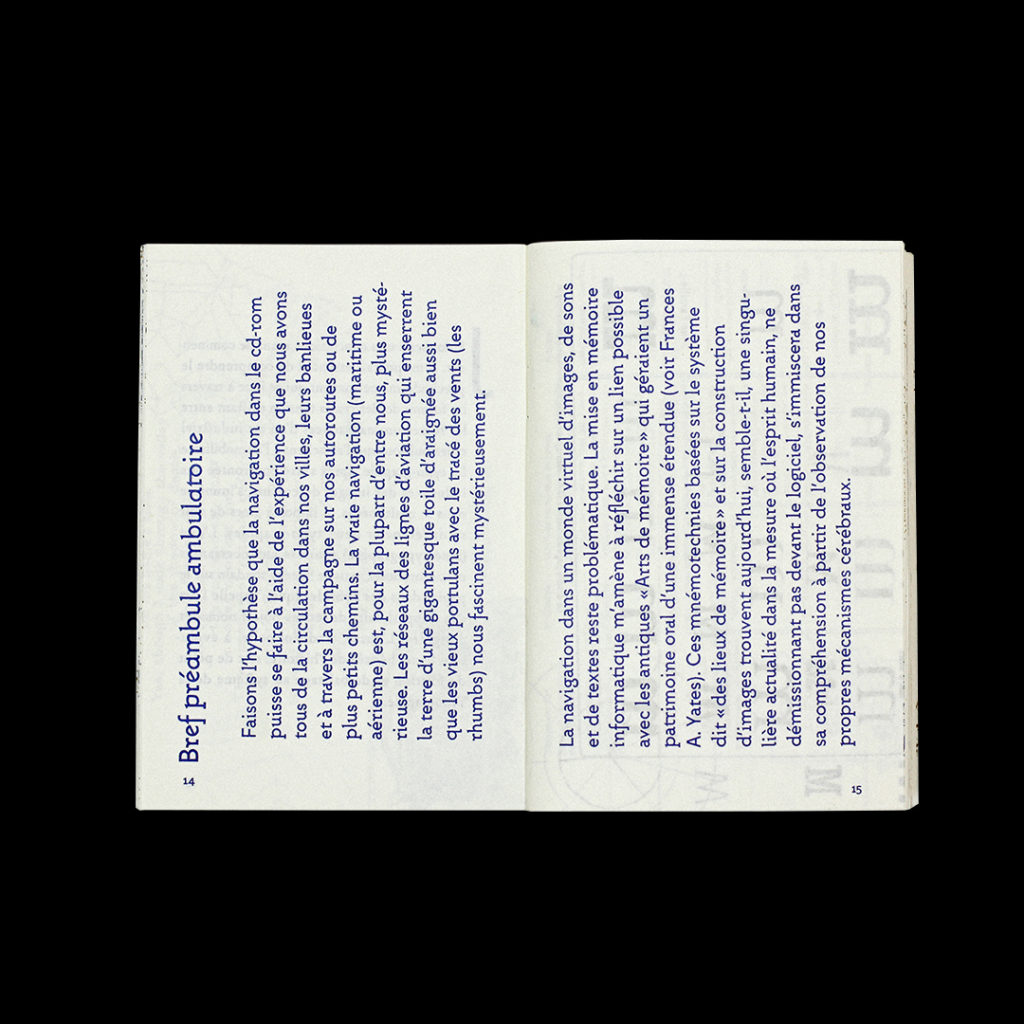 Bref préambule ambulatoire
Faisons l'hypothèse que la navigation dans le cd-rom
puisse se faire à l'aide de l'expérience que nous avons
tous de la circulation dans nos villes, leurs banlieues
et à travers la campagne sur nos autoroutes ou de
plus petits chemins. La vraie navigation (maritime ou
aérienne) est, pour la plupart d'entre nous, plus mysté-
rieuse. Les réseaux des lignes d'aviation qui enserrent
la terre d'une gigantesque toile d'araignée aussi bien
que les vieux portulans avec le tracé des vents (les
rhumbs) nous fascinent mystérieusement.
14
La navigation dans un monde virtuel d'images, de sons
et de textes reste problématique. La mise en mémoire
informatique m'amène à réfléchir sur un lien possible
avec les antiques «Arts de mémoire» qui géraient un
patrimoine oral d'une immense étendue (voir Frances
A. Yates). Ces mnémotechnies basées sur le système
dit «des lieux de mémoire» et sur la construction
d'images trouvent aujourd'hui, semble-t-il, une singu-
lière actulité dans la mesure où l'esprit humain, ne
démissionnant pas devant le logiciel, s'immiscera dans
sa compréhension à partir de l'observation de nos
propres mécanismes cérébraux.
15